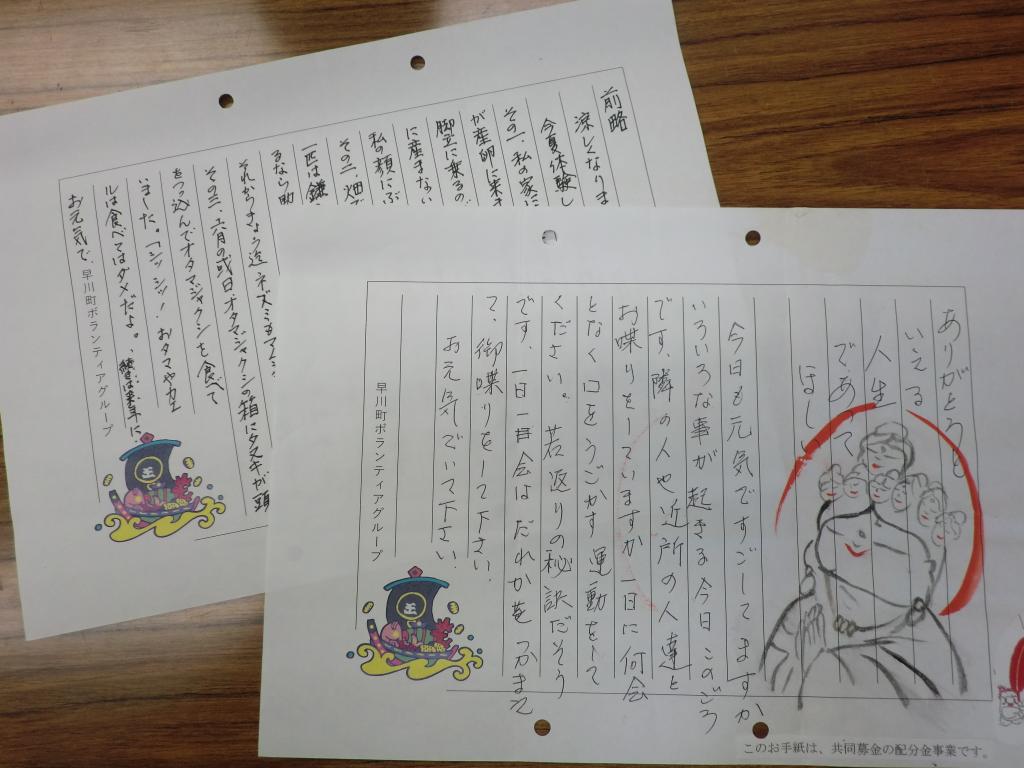 前略
涼しくなりま
今夏体験し
その一、私の家に
が産卵に来ま
脚立に乗るので
に産まない
私の顔にぶ
その二、畑で
一匹は鎌
るなら助
それからきのう迄ネズミもマムシ
その三、六月の或日オタマジャクシの箱にタヌキが頭
をつっ込んでオタマジャクシを食べて
いました。「シッシッ!おタマやカエ
ルは食べてはダメだよ。
お元気で、
早川町ボランティアグループ
ありがとうと
いえる
人生
で、あって
ほしい
今日も元気ですごしてますか
いろいろな事が起きる今日このごろ
です、隣の人や近所の人達と
お喋りをしていますか一日に何会
となく口をうごかす運動をして
ください。若返りの秘訣だそう
です、一日一会はだれかをつかまえ
て、御喋りをして下さい、
お元気でいて下さい、
早川町ボランティアグループ
このお手紙は、共同募金の配分金事業です。